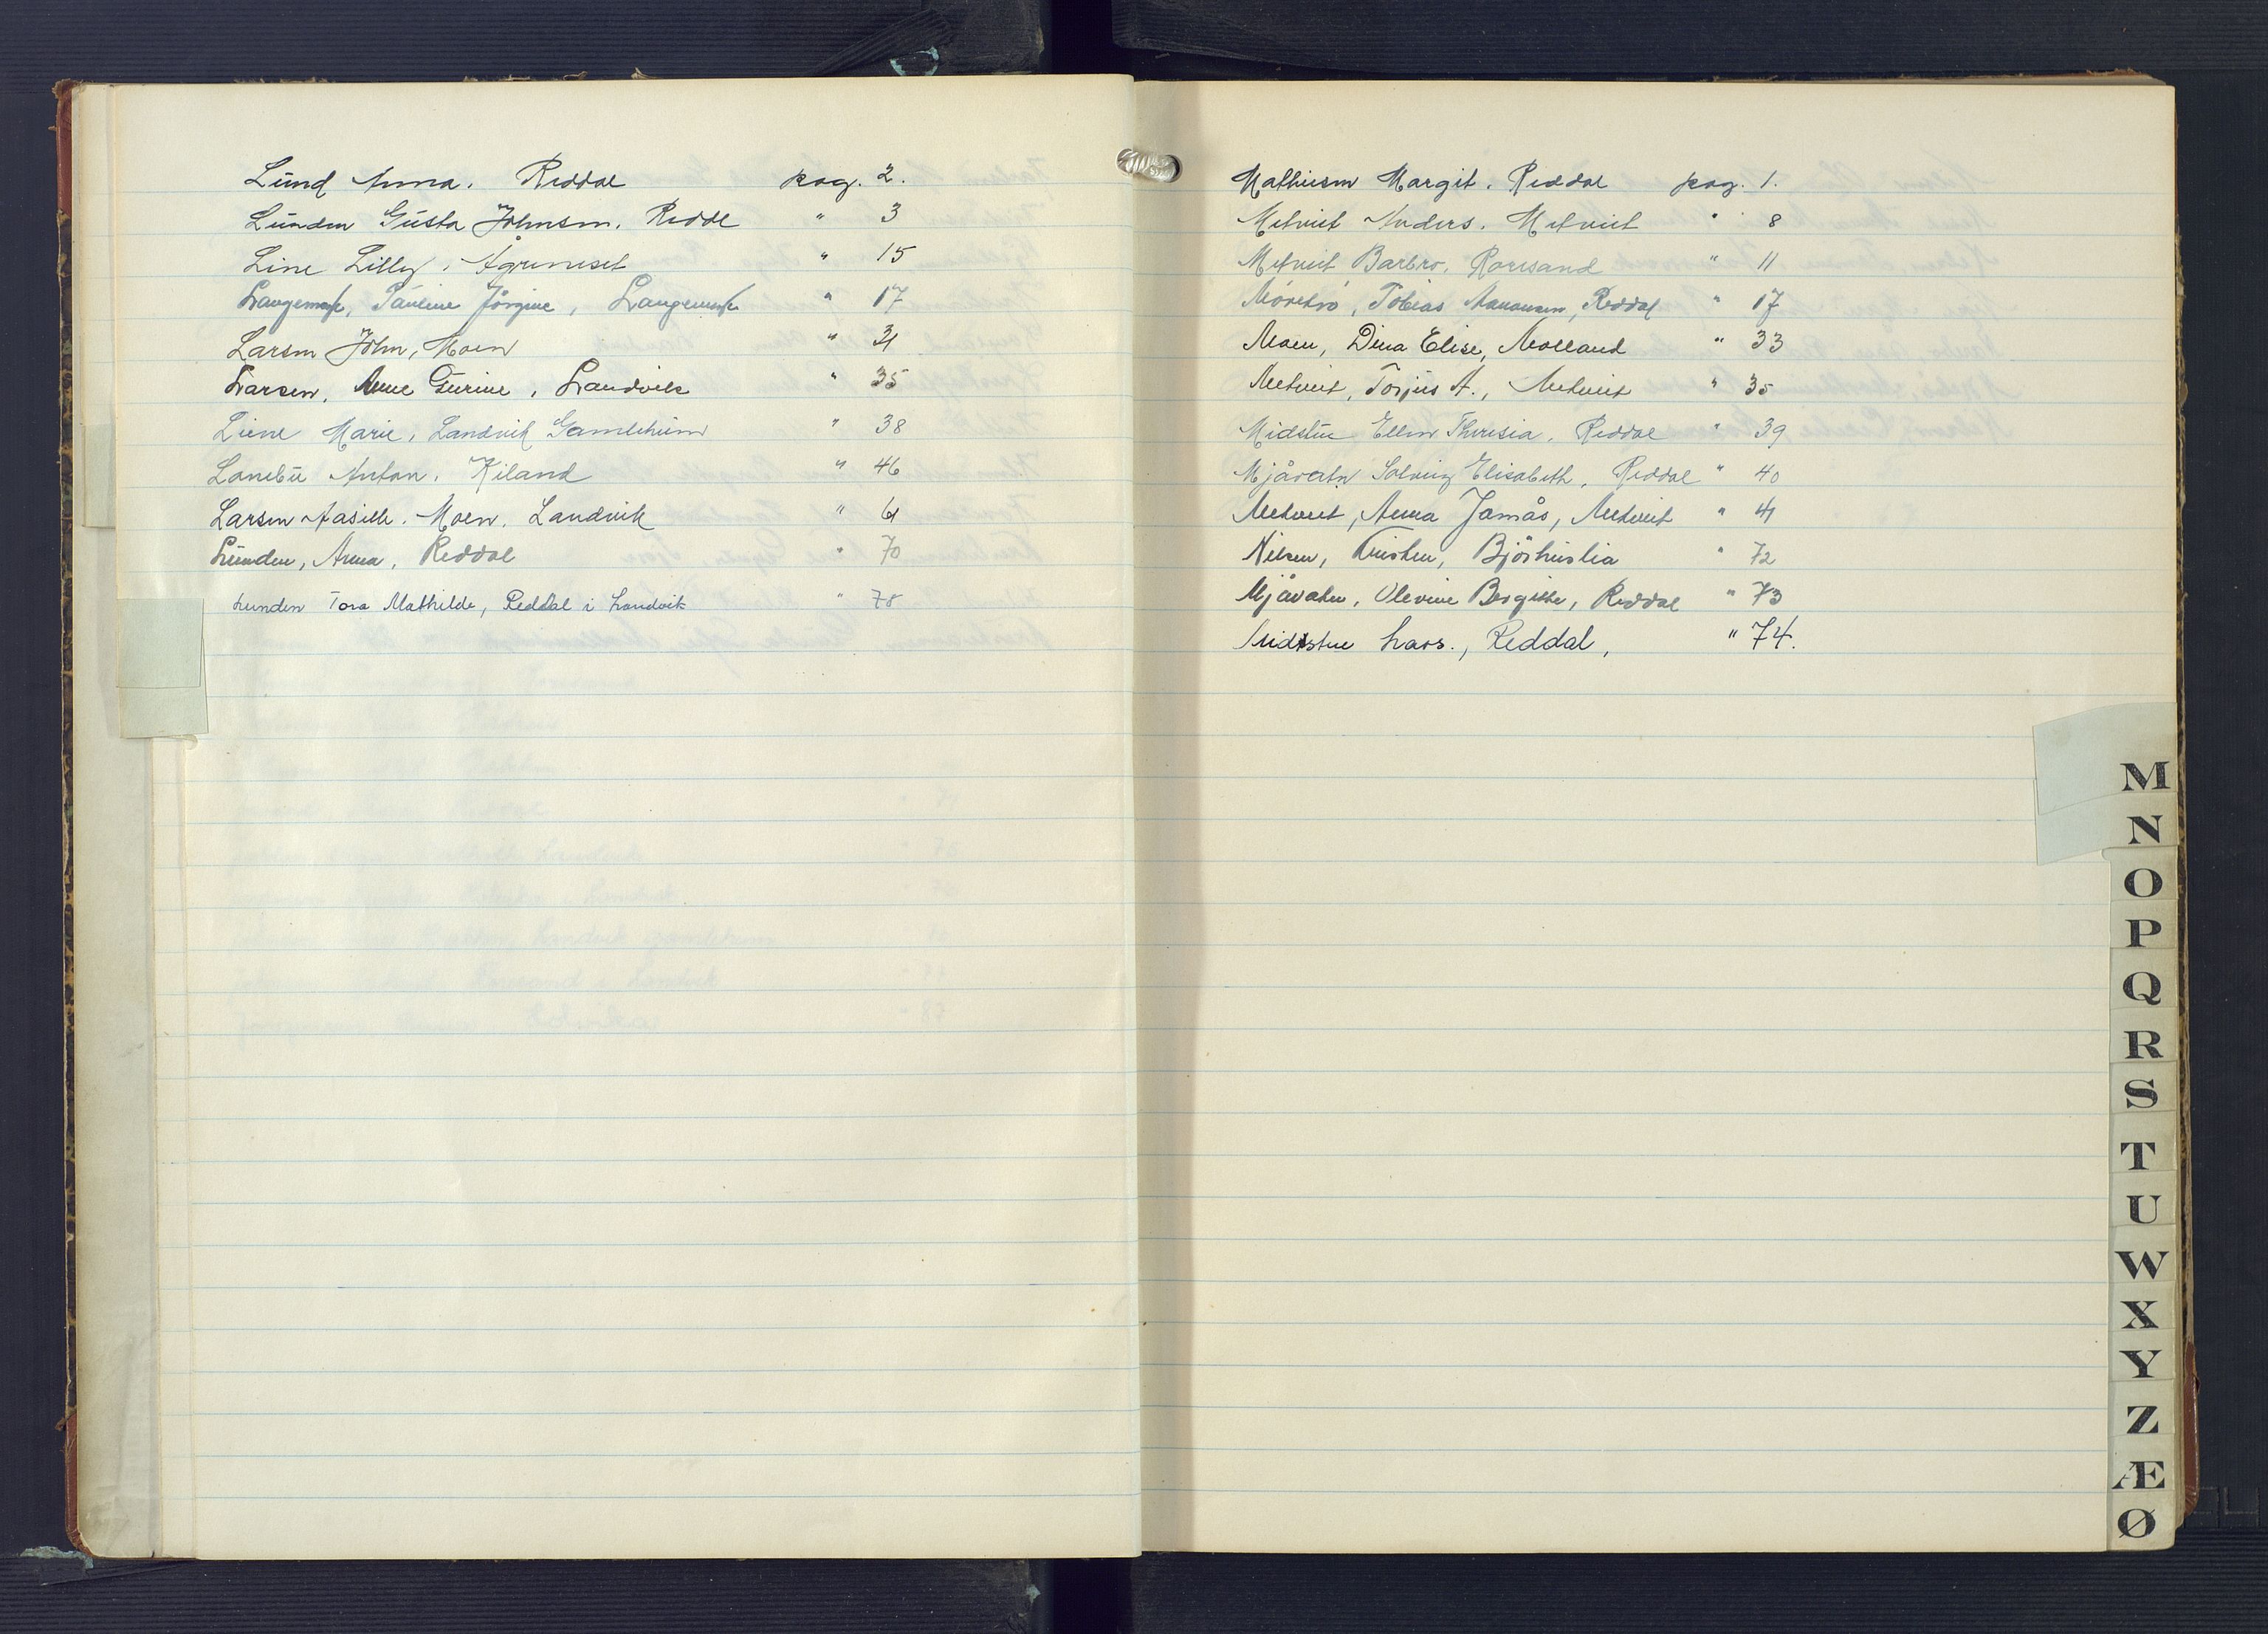 Lund Anna. Reddal pag. 2.
Lunden Gusta Johnsen. Reddl " 3
Line Lilly. Ågreneset " 15
Langemyr, Pauline Jörgine, Langemyr " 17
Larsen John, Moen " 31
Larsen, Anne Turine, Landvik " 35
Liene Marie, Landvik Gamlehim " 38
Lonebu Anton. Kiland " 46
Larsen Aasille. Moen. Landvik " 61
Lunden, Anna, Reddal " 70
Lunden Tora Mathilde, Reddal i Landvik " 78
Mathiesen Margit. Reddal pag. 1.
Metveit Anders. Metveit " 8
Metveit Barbro. Roresand " 11
Mörebrö, Tobias Aanonsen, Reddal " 17
Moen, Dina Elise, Molland " 33
Metveit, Torjus A., Metveit " 35
Midstue Ellen Theresia. Reddal " 39
Mjåvatn Solveig Elisabeth, Reddal " 40
Metveit, Anna Jamås, Metveit " 41
Nilsen, Kristen, Bjørhuslia " 72
Mjåvaten, Olevine Bergitte, Reddal " 73
Midtstue Lars., Reddal, " 74.
M
N
O
P
Q
R
S
T
U
W
X
Y
Z
Æ
Ø